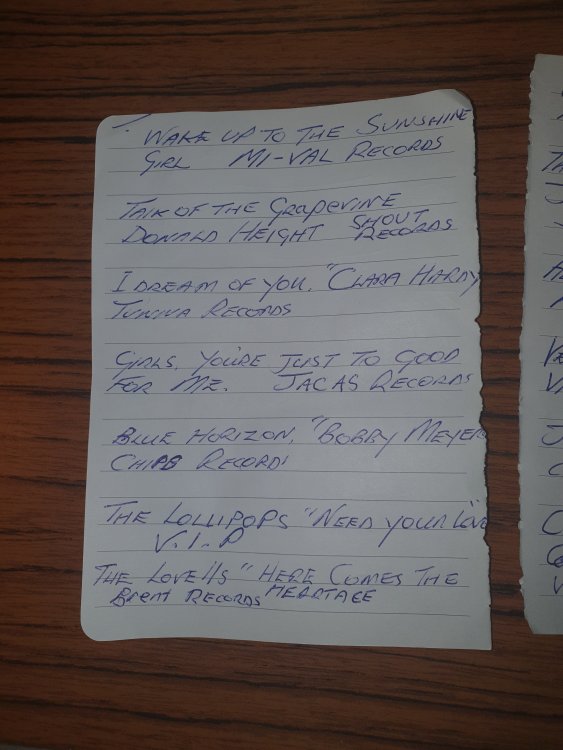 WAKE UP TO THE SUNSHINE
GIRL MI-VAL RECORDS
TALK OF THE GRAPEVINE
DONALD HEIGHT SHOUT RECORDS
I DREAM OF YOU, "CLARA HARDY
RECORDS
GIRLS, YOU'RE JUST TO GOOD
FOR ME. JACAS RECORDS
BLUE HORIZON, "BOBBY MEYER
CHIPS RECORD
THE LOLLIPOPS "NEED YOUR LOVE
V.I.P
THE LOVELLS "HERE COMES THE
Brent RECORDS HEARTACE